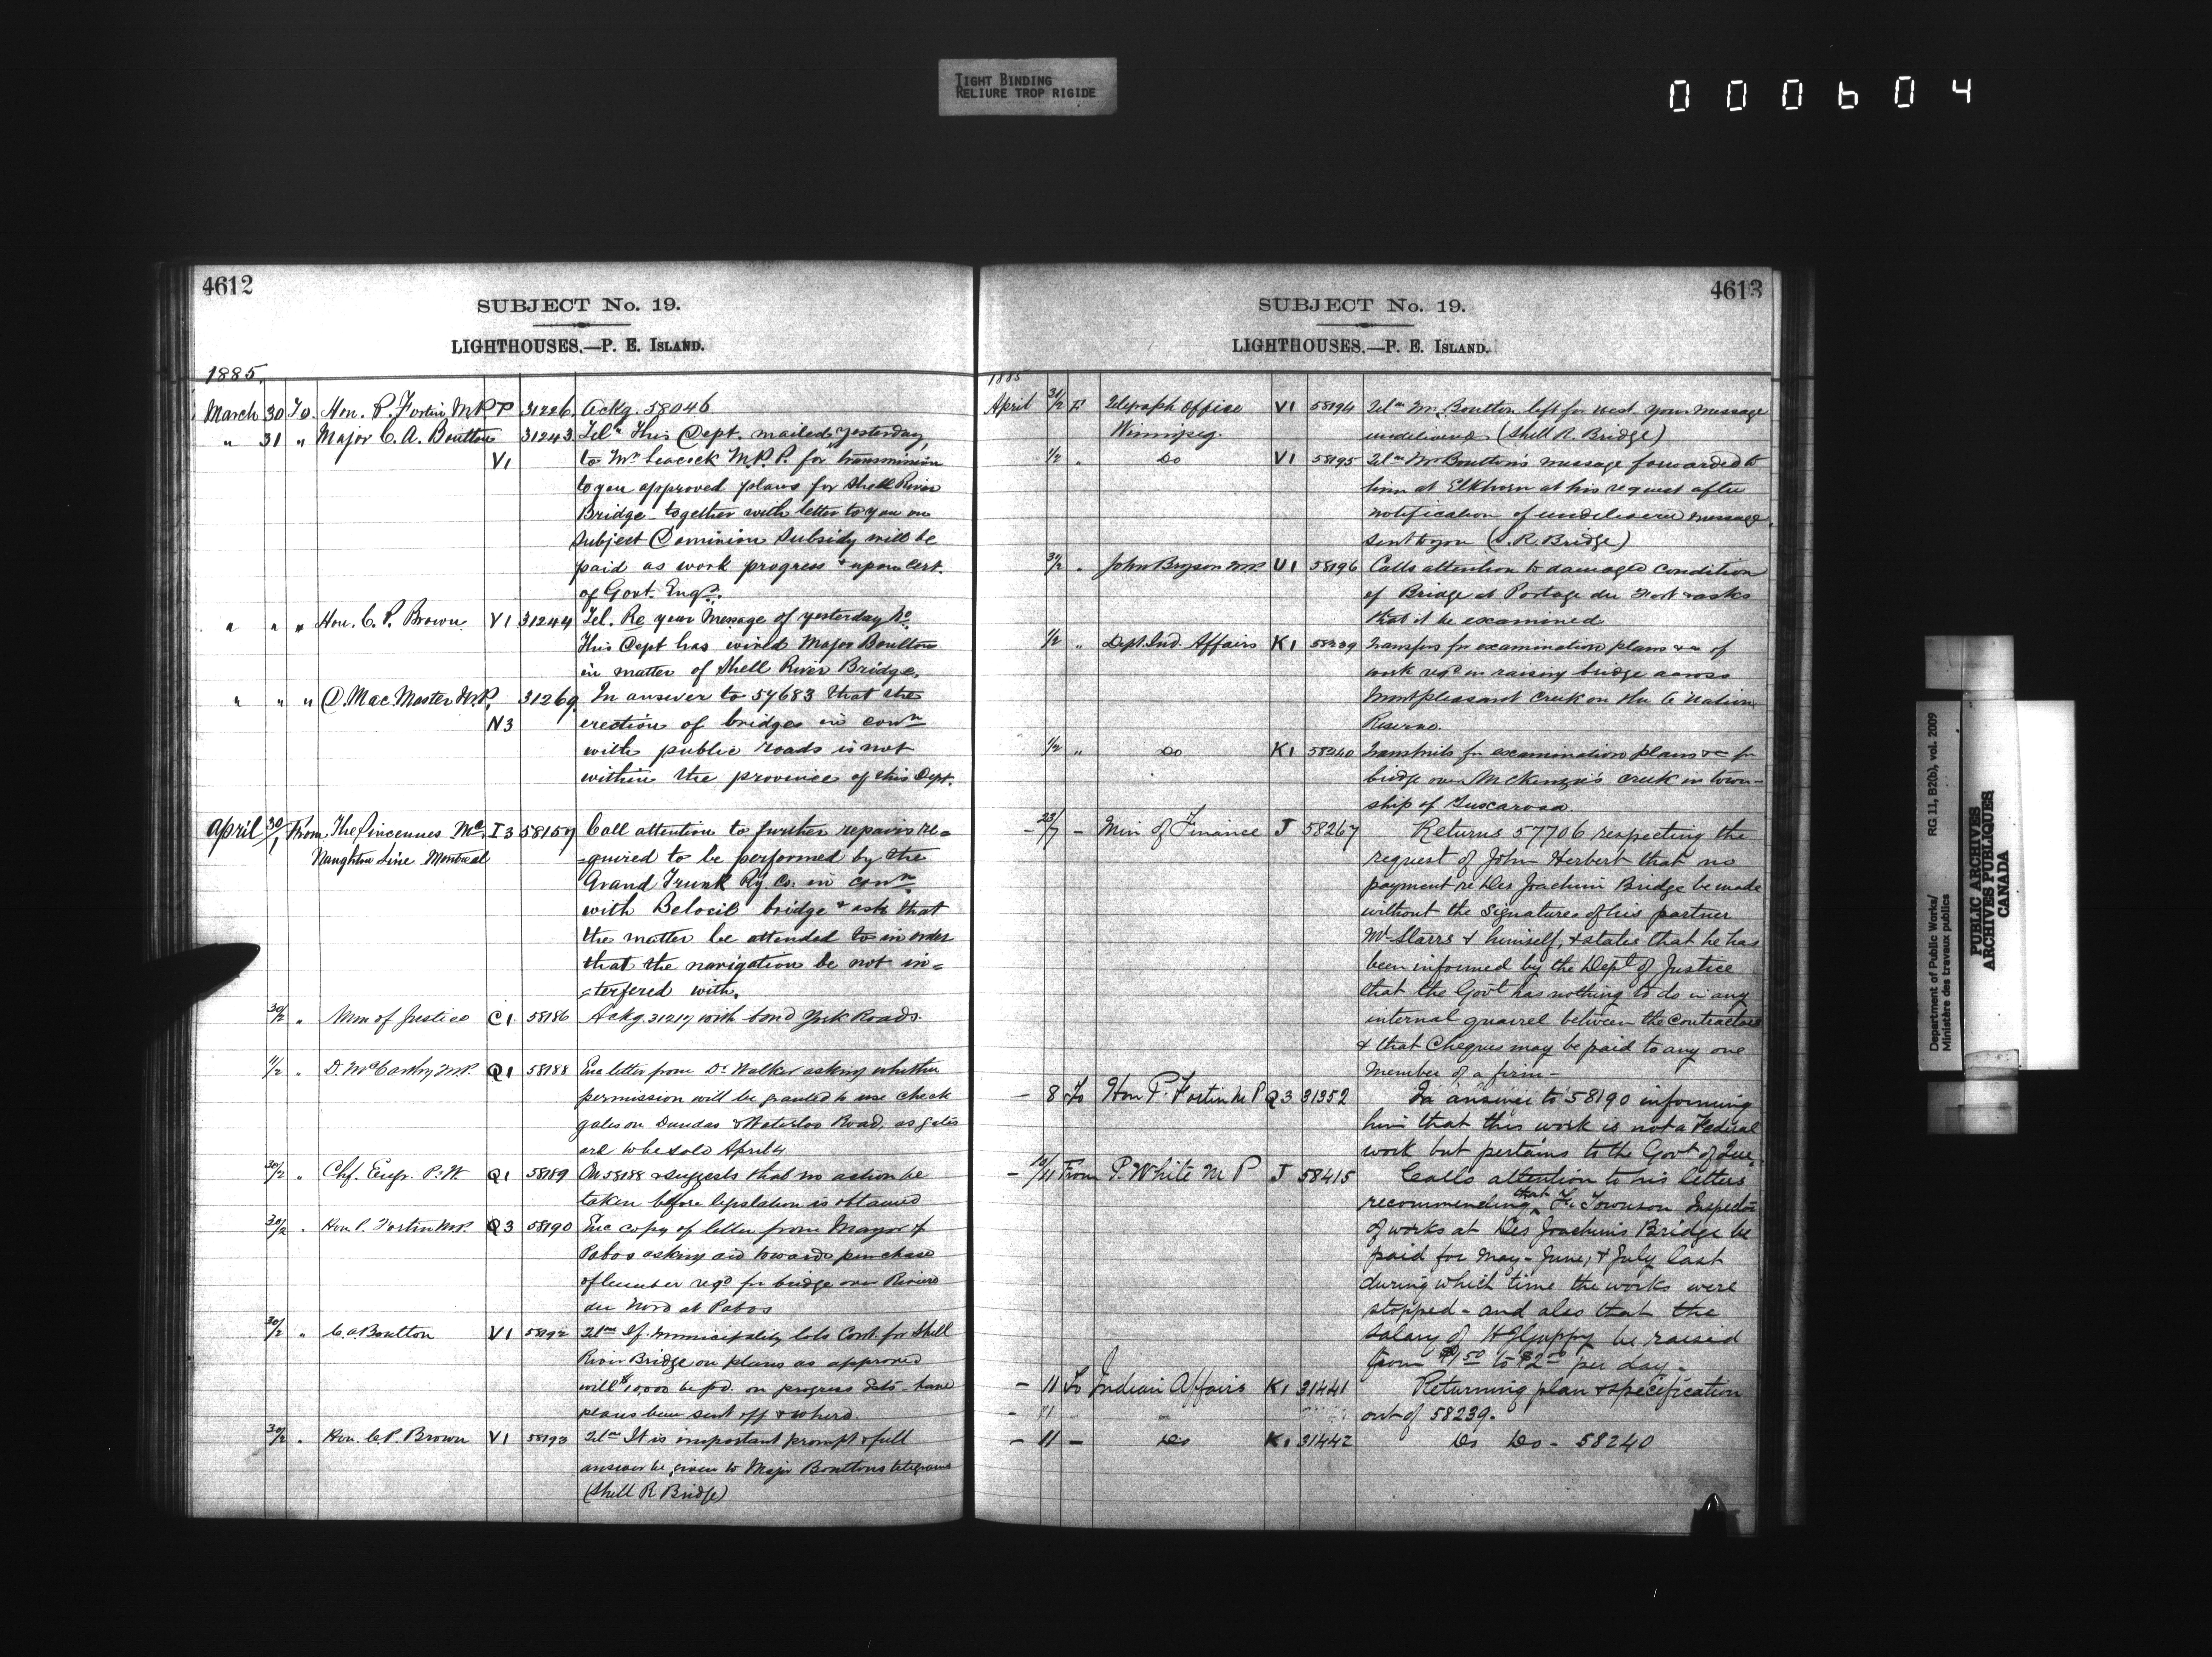 TIGHT BINDING
RELIURE TROP RIGIDE
000604
4612
SUBJECT No. 19.
LIGHTHOUSES.—P. E. ISLAND.
1885.
March 30 To Hon. P. Fortin M.P. P 31226 Ackg. 58046
" 31 " Major C. A. Boulton 31243 Telm This Dept. mailed yesterday
V1 to Mr Leacock M.P.P. for transmission
to you approved plans for Shell River
Bridge together with letter to you on
subject Dominion Subsidy will be
paid as work progress & upon cert.
of Govt. Engr.
" " " Hon. C. P. Brown V1 31244 Tel. Re your Message of yesterday
This Dept has wired Major Boulton
in matter of Shell River Bridge.
" " " D. Mac Master M.P. 31269 In answer to 57683 that the
N3 erection of bridges in conn
with public roads is not
within the province of this Dept.
April 30/1 From The Vincennes Mc I3 58157 Call attention to further repairs re=
Naughton Line Montreal =quired to be performed by the
Grand Trunk Ry Co. in conn
with Beloeil bridge & ask that
the matter be attended to in order
that the navigation be not in=
=terfered with.
30/2 " Min of Justice C1 58186 Ackg. 31217 with bond York Roads.
1/2 " D. McCarthy M.P. Q1 58188 Enc letter from Dr Walker asking whether
permission will be granted to use check
gates on Dundas & Waterloo Road, as gates
are to be sold April 4
30/2 " Chf. Engr. P.W. Q1 58189 On 58188 & suggests that no action be
taken before legislation is obtained
30/2 " Hon P. Fortin M.P. Q3 58190 Enc copy of letter from Mayor of
Pabos asking aid towards purchase
of lumber reqd for bridge over Riviere
du Nord at Pabos
30/2 " C. A Boulton V1 58192 Telm If municipality lets Cont. for Shell
River Bridge on plans as approved
will $10,000 be pd. on progress Ests - have
plans been sent off & where
30/2 " Hon. C. P. Brown V1 58193 Telm It is important prompt & full
answer be given to Major Boultons telegrams
(Shell R Bridge)
4613
SUBJECT No. 19.
LIGHTHOUSES.—P. E. ISLAND.
1885
April 31/2 F Telegraph Office V1 58194 Telm Mr. Boulton left for west your message
Winnipeg. undelivered (Shell R. Bridge)
1/2 " Do V1 58195 Telm Mr Boulton's message forwarded to
him at Elkhorn at his request after
notification of undelivered message
sent to you (S. R. Bridge)
31/2 " John Bryson M.P. V1 58196 Calls attention to damaged condition
of Bridge at Portage du Fort & asks
that it be examined
1/2 " Dept. Ind. Affairs K1 58239 Transfers for examination plans &c of
work reqd in raising bridge across
Mountpleasant Creek on the 6 Nation
Reserve.
1/2 " Do K1 58240 Transmits for examination plans &c for
bridge over McKenzie's creek in town-
ship of Tuscarora
- 23/7 - Min of Finance J 58267 Returns 57706 respecting the
request of John Herbert that no
payment re Des Joachim Bridge be made
without the signatures of his partner
Mr Starrs & himself, & states that he has
been informed by the Dept of Justice
that the Govt has nothing to do in any
internal quarrel between the Contractors
& that Cheques may be paid to any one
Member of a firm -
- 8 To Hon P. Fortin M P Q3 31352 In answer to 58190 informing
him that this work is not a Federal
work but pertains to the Govt of Que.
- 10/11 From P. White M P J 58415 Calls attention to his letters
recommending that Townson Inspector
of works at Des Joachims Bridge be
paid for May - June, & July last
during which time the works were
stopped - and also that the
salary of Guppy be raised
from $1.50 to $2.00 per day -
- 11 To Indian Affairs K1 31441 Returning plan & specification
- 11 out of 58239.
- 11 - Do K1 31442 Do Do - 58240
Department of Public Works/
Ministère des travaux publics
RG 11, B2(b), vol. 2009
PUBLIC ARCHIVES
ARCHIVES PUBLIQUES
CANADA